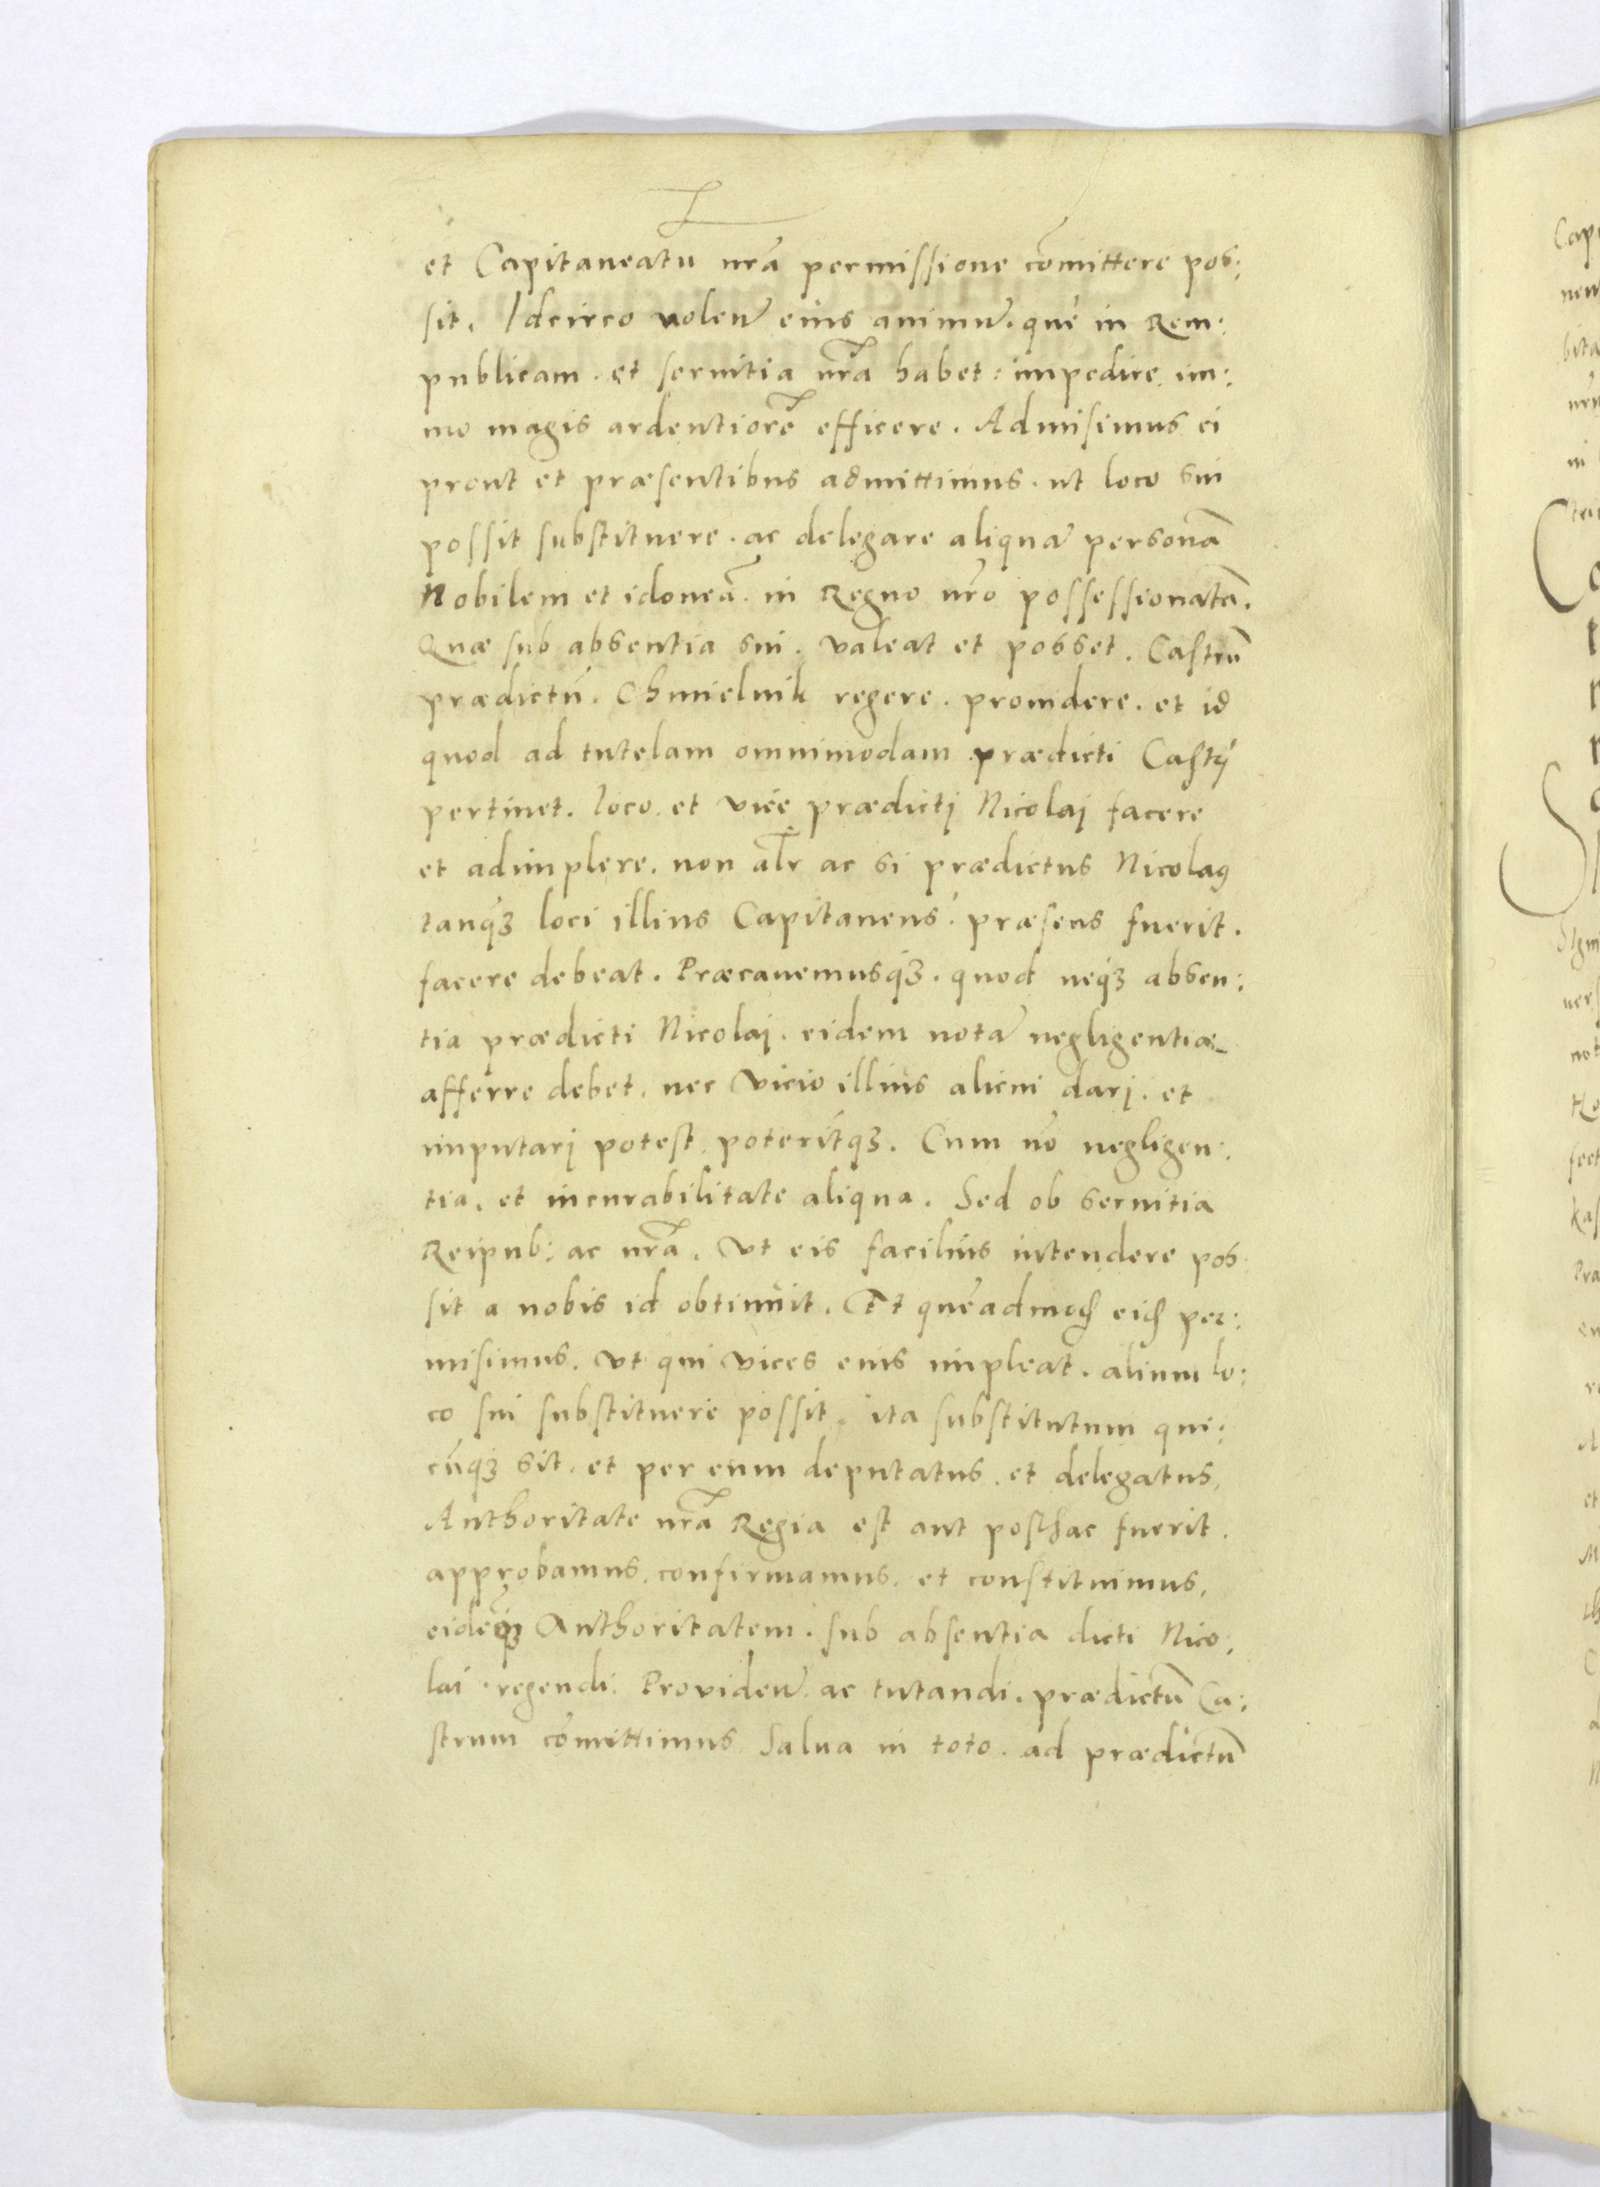 et Capitaneatu nrã permissione cõmittere pos:
sit. Idcirco nolen̄ eius animũ. quẽ in Rem:
publicam. et seruitia nr̃a habet: impedire. im:
mo magis ardentiorẽ efficere. Admisimus ei
prout et præsentibus admittimus. ut loco sui
possit substituere. ac delegare aliquã personã
Nobilem et idoneã. in Regno nr̃o possessionatã.
Quæ sub absentia sui. valeat et posset. Castrũ
prædictũ. Chmielnik regere. prouidere. et id
quod ad tutelam omnimodam prædicti Castrj
pertinet. loco. et vice prædictj Nicolaj facere
et adimplere. non al̃r ac si prædictus Nicolaꝰ
tanqꝫ loci illius Capitaneus. præsens fuerit.
facere debeat. Præcauemusqꝫ. quod neqꝫ absen:
tia prædicti Nicolaj. eidem notã negligentiæ
afferre debet. nec vicio illius alicui darj. et
imputarj potest. poteritqꝫ. Cum nõ negligen:
tia. et incurabilitate aliqua. Sed ob seruitia
Reipub: ac nr̃a. Vt eis facilius intendere pos
sit a nobis id obtinuit. Et quẽadmod eid per:
misimus. vt qui vices euis impleat. alium lo:
co sui substituere possit. ita substitutum qui:
cũqꝫ sit. et per eum deputatus. et delegatus.
Authoritate nr̃a Regia est aut posthac fuerit.
approbamus. confirmamus. et constituimus.
eidẽqꝫ Authoritatem. sub absentia dicti Nico:
lai regendi. Providen̄. ac tutandi. prædictũ Ca:
strum cõmittimus Salua in toto. ad prædictũ